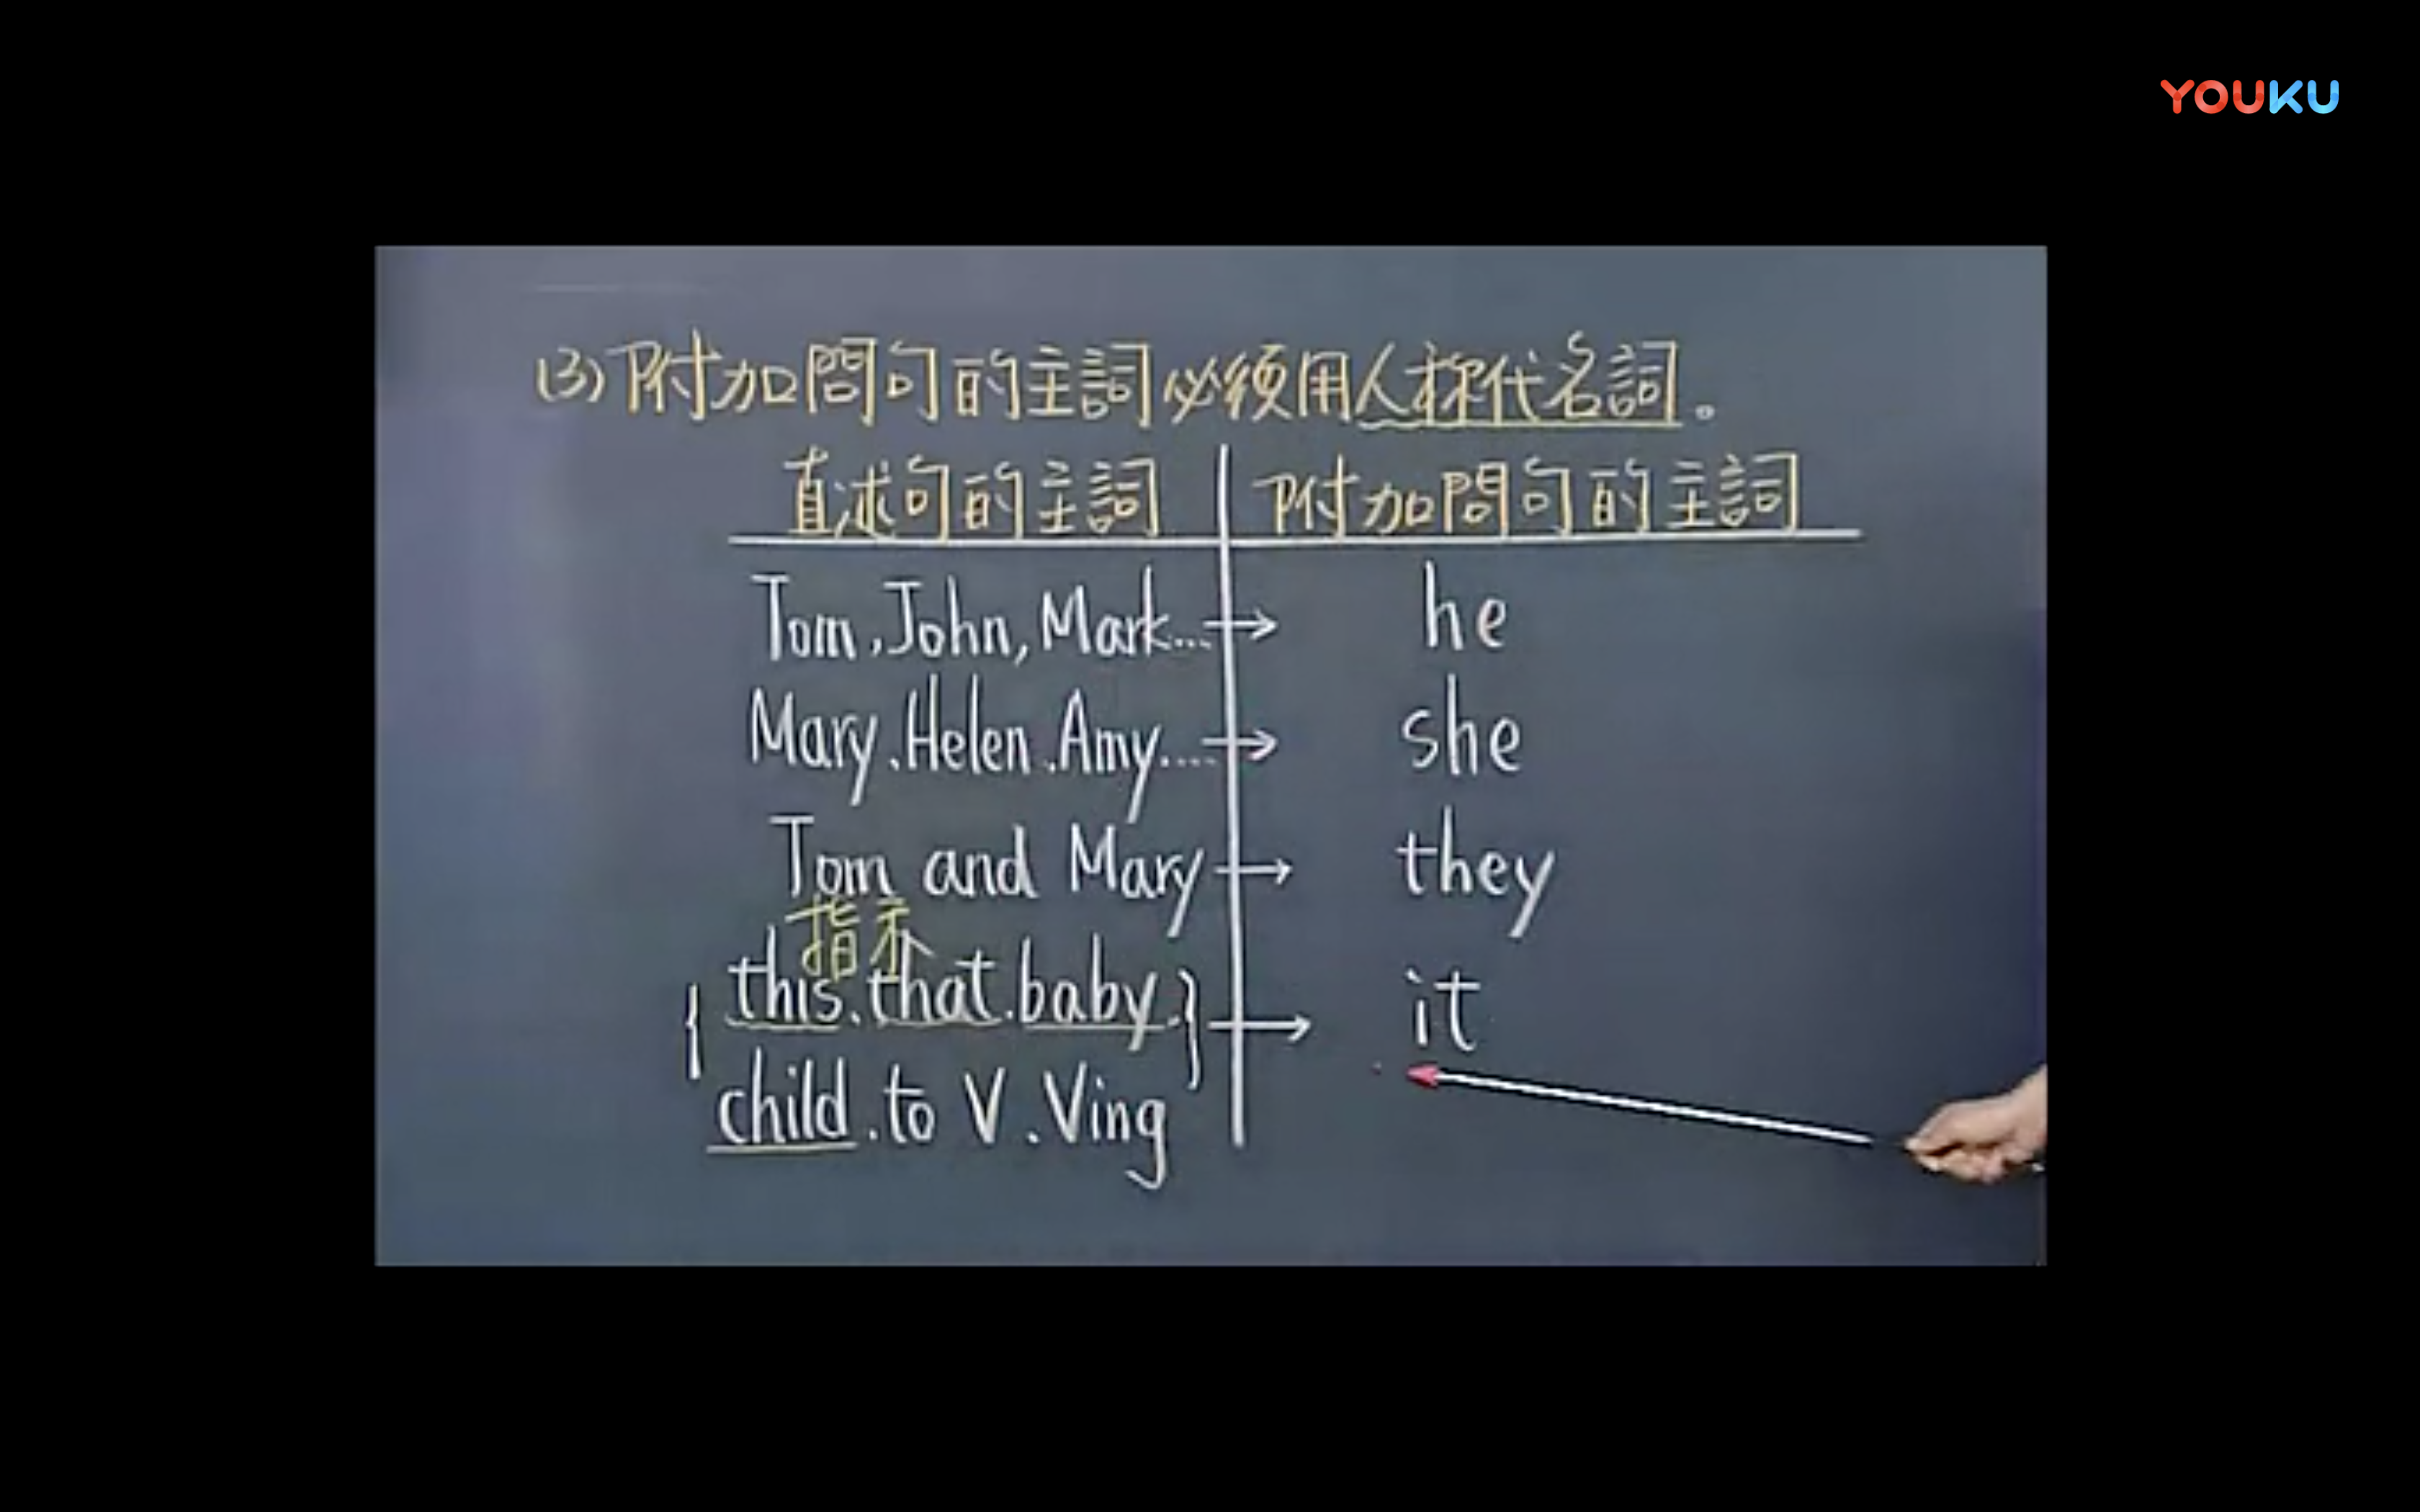 YOUKU
(3)附加問句的主詞必須用人稱代名詞。
直述句的主詞 附加問句的主詞
Tom,John,Mark...→ he
Mary.Helen.Amy....→ she
Tom and Mary→ they
指示
{this.that.baby.}→ it
child.to V.Ving